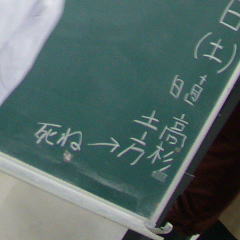 日(土)
日直
高杉
土方
死ね→